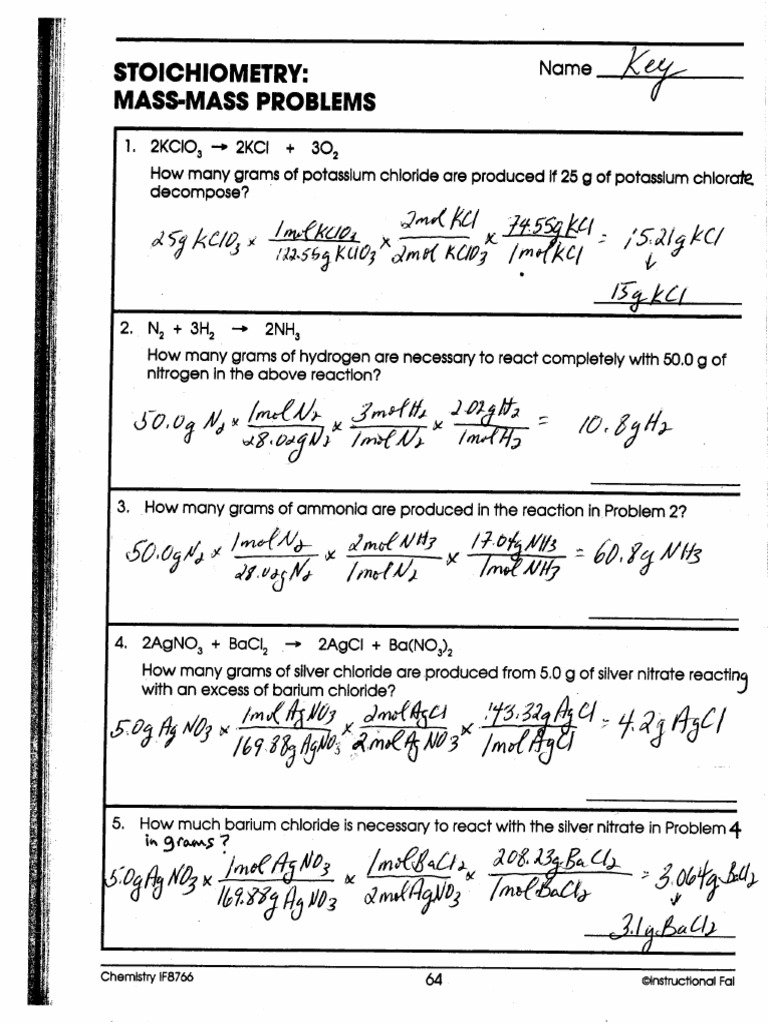 STOICHIOMETRY:
MASS-MASS PROBLEMS
Name Key
1. 2KClO₃ → 2KCl + 3O₂
How many grams of potassium chloride are produced if 25 g of potassium chlorate
decompose?
25g KClO₃ × 1mol KClO₃/122.55g KClO₃ × 2mol KCl/2mol KClO₃ × 74.55g KCl/1mol KCl = 15.21g KCl
↓
15g KCl
2. N₂ + 3H₂ → 2NH₃
How many grams of hydrogen are necessary to react completely with 50.0 g of
nitrogen in the above reaction?
50.0g N₂ × 1mol N₂/28.02g N₂ × 3mol H₂/1mol N₂ × 2.02g H₂/1mol H₂ = 10.8g H₂
3. How many grams of ammonia are produced in the reaction in Problem 2?
50.0g N₂ × 1mol N₂/28.02g N₂ × 2mol NH₃/1mol N₂ × 17.04g NH₃/1mol NH₃ = 60.8g NH₃
4. 2AgNO₃ + BaCl₂ → 2AgCl + Ba(NO₃)₂
How many grams of silver chloride are produced from 5.0 g of silver nitrate reacting
with an excess of barium chloride?
5.0g AgNO₃ × 1mol AgNO₃/169.88g AgNO₃ × 2mol AgCl/2mol AgNO₃ × 143.32g AgCl/1mol AgCl = 4.2g AgCl
5. How much barium chloride is necessary to react with the silver nitrate in Problem 4
in grams?
5.0g AgNO₃ × 1mol AgNO₃/169.88g AgNO₃ × 1mol BaCl₂/2mol AgNO₃ × 208.23g BaCl₂/1mol BaCl₂ = 3.064g BaCl₂
↓
3.1g BaCl₂
Chemistry IF8766
64
©Instructional Fai